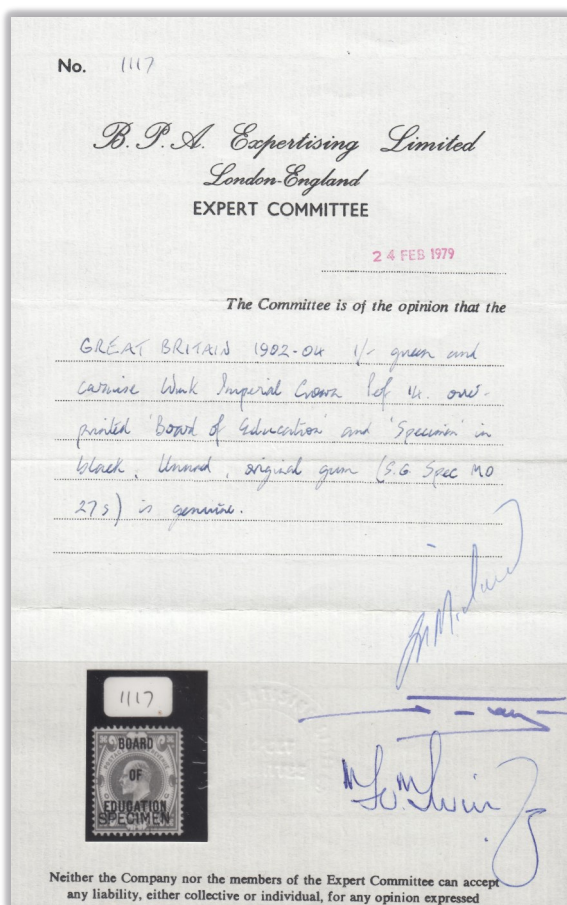 No. 1117
B. P. A. Expertising Limited
London-England
EXPERT COMMITTEE
24 FEB 1979
The Committee is of the opinion that the
GREAT BRITAIN 1902-04 1/- green and
carmine Wmk Imperial Crown Perf 14. over-
printed 'Board of Education' and 'Specimen' in
black, Unused, original gum (S.G Spec MO
27s) is genuine.
1117
BOARD
OF
EDUCATION
SPECIMEN
Neither the Company nor the members of the Expert Committee can accept
any liability, either collective or individual, for any opinion expressed